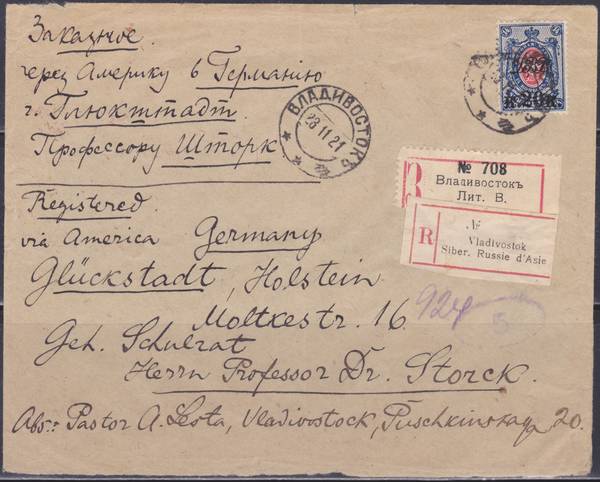 Заказное
через Америку в Германію
г. Глюкштадт
Профессору Шторк
ВЛАДИВОСТОКЪ
28 11 21
к. 20 к.
№ 708
Владивостокъ
Лит. В.
R
№
Vladivostok
Siber. Russie d'Asie
Registered
via America Germany
Glückstadt, Holstein
Moltkestr. 16
924
Geh. Schulrat
Herrn Professor Dr. Storck.
Abs.: Pastor A. Lesta, Vladivostock, Puschkinskaja 20.